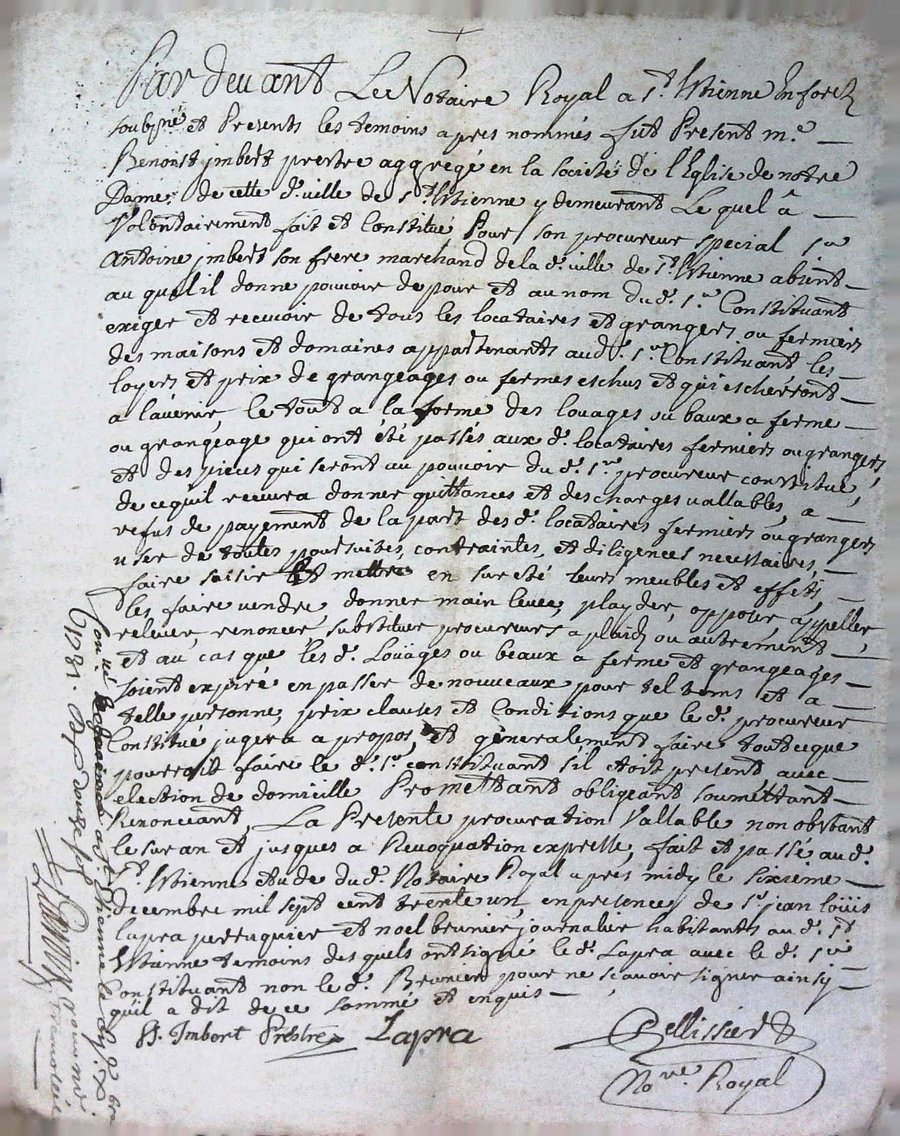 Par devant Le Notaire Royal a St. Etienne En forest
soubsigné et Presents les temoins apres nommés fut Present me.
Benoist jmbert prestre aggregé en la societé de l'Eglise de notre
Dame de cette d. ville de St. Etienne y demeurant Le quel a
Volontairement fait et Constitué Pour son procureur special sr
Antoine jmbert son frere marchand de la d. ville de St. Etienne absent
au quel il donne pouvoir de pour et au nom du d. sr. Constituant
exiger et recevoir de tous les locataires et grangers ou fermiers
des maisons et domaines appartenants aud. sr. Constituant les
loyers et prix de grangeages ou fermes eschus et qui escherront
a l'avenir, le tout a la forme des louages ou baux a ferme
ou grangeage qui ont été passés aux d. locataires fermiers ou grangers
et des pieces qui seront au pouvoir du d. sr. procureur constitué,
de cequil recevra donner quittances et descharges vallables, a
refus de payement de la part des d. locataires fermiers ou grangers
user de toutes poursuites, contraintes, et diligences necessaires,
faire saisir et mettre en sureté leurs meubles et effets
les faire vendre, donner main levée, playder, opposer, appeller,
relever, renoncer, substituer procureurs a plaids ou autrement
et au cas que les d. Loüages ou beaux a ferme et grangeages
soient expiré en passer de nouveaux pour tel tems et a
telle personne, prix clauses et Conditions que le d. procureur
Constitué jugera a propos et generalement faire tout ceque
pourroit faire le d. sr. constituant s'il etoit present avec
election de domicille Promettant obligeant soumettant
Renonceant, La Presente procuration Vallable non obstant
le sur an et jusques a Revoquation expresse, fait et passé aud.
St. Etienne etude du d. Notaire Royal apres midy le sixieme
decembre mil sept cent trente un, en presence de sr. jean loüis
lapra perruquier et noel brunier journalier habitants au d. St
Etienne temoins des quels ont signé le d. Lapra avec le d. sr
Constituant non le d. Brunier pour ne sçavoir signer ainsy
qu'il a dit de ce sommé et enquis
B. Jmbert Prestre Lapra Pellissier
Nore. Royal
a st Etienne le
1731. douze sols